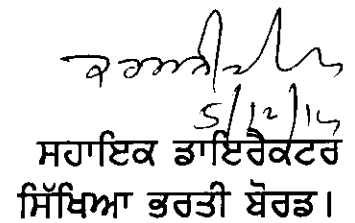 5/12/14
ਸਹਾਇਕ ਡਾਇਰੈਕਟਰ
ਸਿੱਖਿਆ ਭਰਤੀ ਬੋਰਡ।